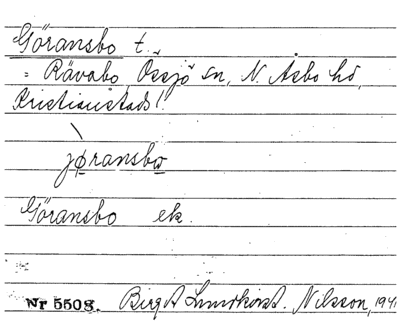 Göransbo t.
= Rävabo, Össjö sn, N. Åsbo hd,
Kristianstads l.
jøransbo
Göransbo ek.
Nr 5508. Birgit Lundkvist. Nilsson, 1941